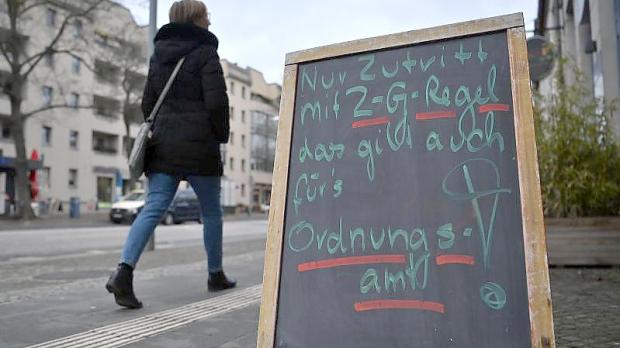 Nur Zutritt
mit 2-G-Regel
das gilt auch
für's
Ordnungs-
amt!